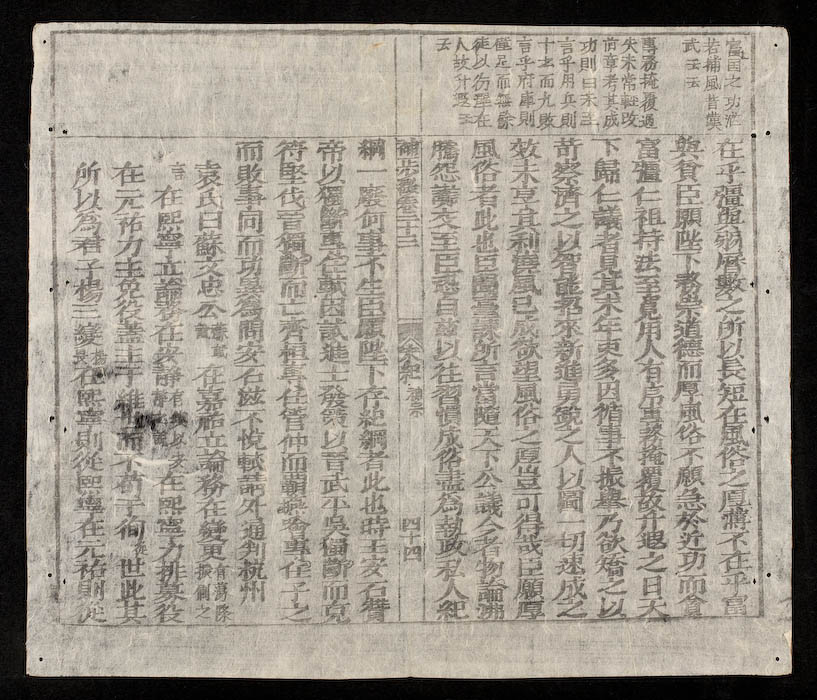 富国之功茫
若捕風昔漢
武云云
專務掩覆過
失未常輕改
前章考其成
功則曰未至
言乎用兵則
十出而九敗
言乎府庫則
僅足而無餘
徒以仁澤在
人故升遐云
云
在乎彊與弱曆數之所以長短在風俗之厚薄不在乎富
與貧臣願陛下務崇道德而厚風俗不願急於近功而貪
富彊仁祖持法至寬用人有序專務掩覆故升遐之日天
下歸仁議者見其末年吏多因循事不振舉乃欲矯之以
苛察濟之以智能招來新進勇銳之人以圖一切速成之
效未享其利澆風已成欲望風俗之厚豈可得哉臣願厚
風俗者此也臣聞臺諫所言常隨天下公議今者物論沸
騰怨讟交至臣恐自茲以往習慣成俗盡爲執政私人紀
卷三十三 宋紀 神宗 四十四
綱一廢何事不生臣願陛下存紀綱者此也時王安石贊
帝以獨斷專任軾因試進士發策以晉武平吳獨斷而克
苻堅伐晉獨斷而亡齊桓專任管仲而霸燕噲專任子之
而敗事同而功異爲問安石滋不悅軾請外通判杭州
袁氏曰蘇文忠公蘇軾諡在嘉祐立論務在變更有
言在熙寧立論務在安靜有在熙寧力排募役
在元祐力主免役蓋主于維世而不苟于徇從世此其
所以爲君子楊三變楊畏在熙寧則從熙寧在元祐則從